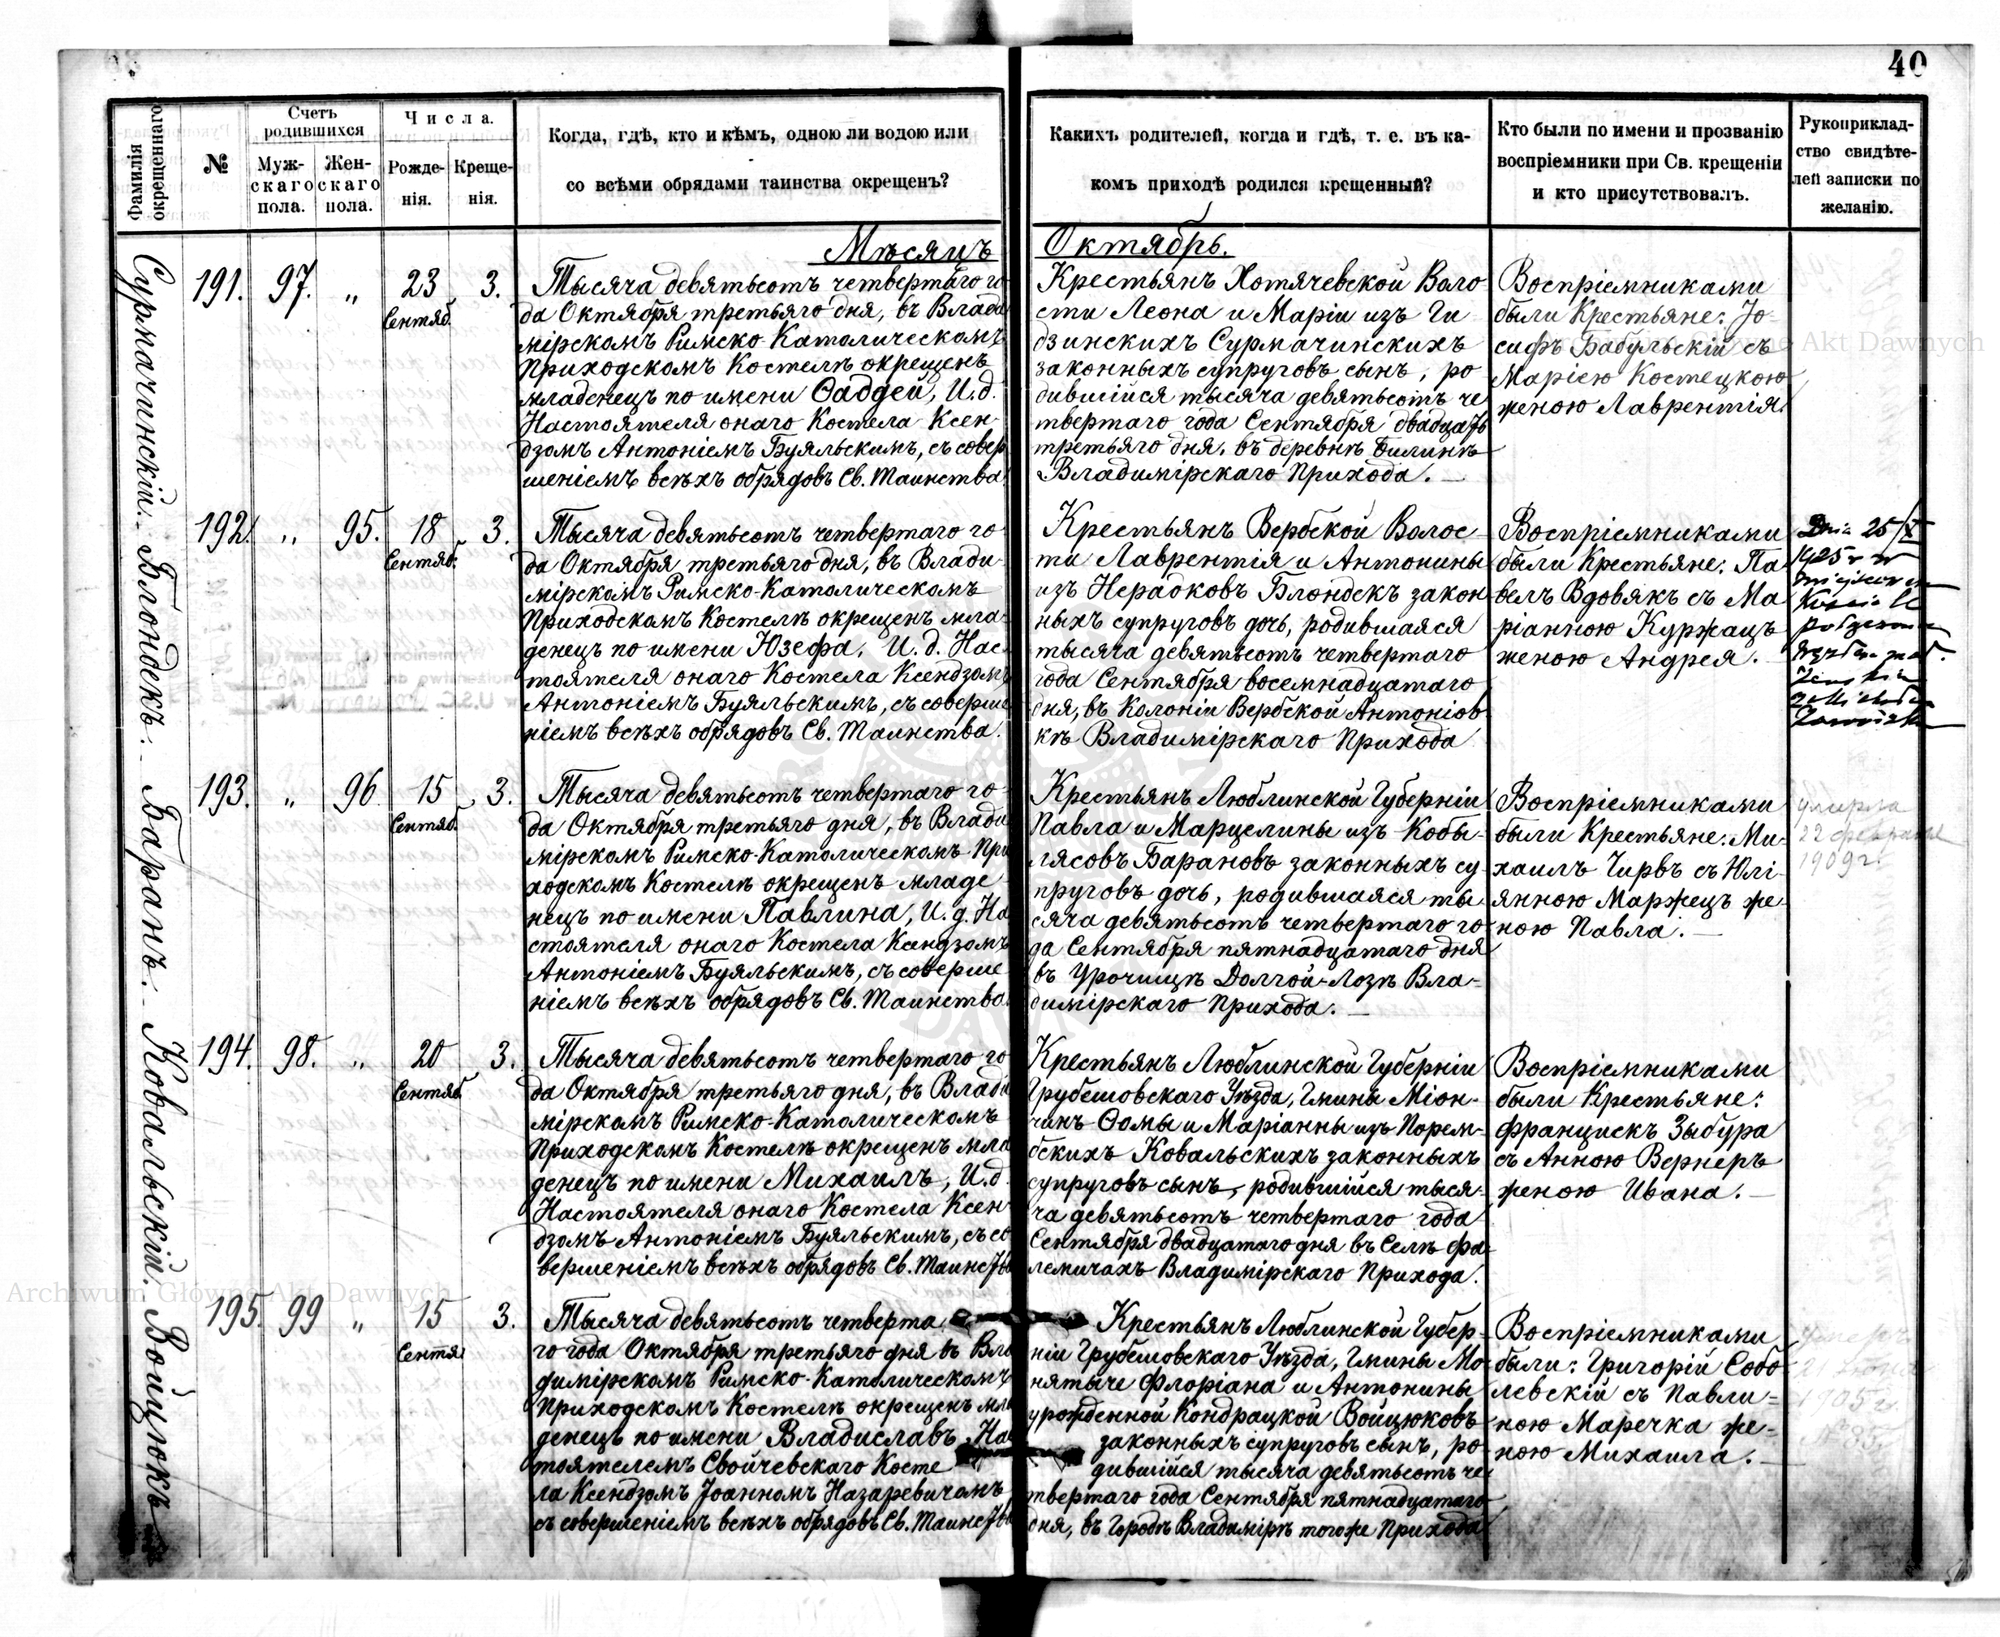 40
Фамилія
окрещеннаго.
№
Счетъ
родившихся
Муж-
скаго
пола.
Жен-
скаго
пола.
Числа.
Рожде-
нія.
Креще-
нія.
Когда, гдѣ, кто и кѣмъ, одною ли водою или
со всѣми обрядами таинства окрещенъ?
Какихъ родителей, когда и гдѣ, т. е. въ ка-
комъ приходѣ родился крещенный?
Кто были по имени и прозванію
воспріемники при Св. крещеніи
и кто присутствовалъ.
Рукоприклад-
ство свидѣте-
лей записки по
желанію.
Мѣсяцъ Октябрь.
Сурмачинскій.
191. 97. „ 23 3.
Сентяб.
Тысяча девятьсотъ четвертаго го-
да Октября третьяго дня, въ Влади
мірскомъ Римско-Католическомъ
Приходскомъ Костелѣ окрещенъ
младенецъ по имени Ѳаддей, И. д.
Настоятеля онаго Костела Ксен-
дзомъ Антоніемъ Буяльскимъ, съ совер
шеніемъ всѣхъ обрядовъ Св. Таинства.
Крестьянъ Хотячевской Воло
сти Леона и Маріи изъ Ги
дзинскихъ Сурмачинскихъ
законныхъ супруговъ сынъ, ро
дившійся тысяча девятьсотъ че
твертаго года Сентября двадцать
третьяго дня, въ деревнѣ Билинѣ
Владимірскаго Прихода.
Воспріемниками
были Крестьяне: Іо-
сифъ Бабульскій съ
Маріею Костецкою
женою Лаврентія.
Блондекъ.
192. „ 95. 18 3.
Сентяб.
Тысяча девятьсотъ четвертаго го-
да Октября третьяго дня, въ Влади-
мірскомъ Римско-Католическомъ
Приходскомъ Костелѣ окрещенъ мла-
денецъ по имени Юзефа, И. д. Нас-
тоятеля онаго Костела Ксендзомъ
Антоніемъ Буяльскимъ, съ соверше
ніемъ всѣхъ обрядовъ Св. Таинства.
Крестьянъ Вербской Волос-
ти Лаврентія и Антонины
изъ Нерадковъ Блондекъ закон
ныхъ супруговъ дочь, родившаяся
тысяча девятьсотъ четвертаго
года Сентября восемнадцатаго
дня, въ Колоніи Вербской Антонiов
кѣ Владимірскаго Прихода
Воспріемниками
были Крестьяне: Па
велъ Вдовякъ съ Ма
ріанною Куржацъ
женою Андрея.
Dnia 25/X
1925 r w
Баранъ.
193. „ 96 15 3.
Сентяб.
Тысяча девятьсотъ четвертаго го-
да Октября третьяго дня, въ Влади
мірскомъ Римско-Католическомъ При
ходскомъ Костелѣ окрещенъ младе
нецъ по имени Павлина, И. д. На
стоятеля онаго Костела Ксендзомъ
Антоніемъ Буяльскимъ, съ соверше
ніемъ всѣхъ обрядовъ Св. Таинства.
Крестьянъ Люблинской Губерніи
Павла и Марцелины изъ Кобы-
лясовъ Барановъ законныхъ су
пруговъ дочь, родившаяся ты-
сяча девятьсотъ четвертаго го-
да Сентября пятнадцатаго дня
въ Урочищѣ Долгой-Лозѣ Вла-
димірскаго Прихода.
Воспріемниками
были Крестьяне: Ми-
хаилъ Чирвъ съ Юлі-
янною Маржецъ же-
ною Павла.
умерла
22 февраля
1909 г.
Ковальскій.
194. 98. „ 20 3.
Сентяб
Тысяча девятьсотъ четвертаго го-
да Октября третьяго дня, въ Влади
мірскомъ Римско-Католическомъ
Приходскомъ Костелѣ окрещенъ мла
денецъ по имени Михаилъ, И. д.
Настоятеля онаго Костела Ксен-
дзомъ Антоніемъ Буяльскимъ, съ со
вершеніемъ всѣхъ обрядовъ Св. Таинства
Крестьянъ Люблинской Губерніи
Грубешовскаго Уѣзда, Гмины Міон-
чинъ Ѳомы и Маріанны изъ Порем-
бскихъ Ковальскихъ законныхъ
супруговъ сынъ, родившійся тыся-
ча девятьсотъ четвертаго года
Сентября двадцатаго дня въ Селѣ Фа-
лемичахъ Владимірскаго Прихода.
Воспріемниками
были Крестьяне:
Францискъ Зыбура
съ Анною Вернеръ
женою Ивана.
Войцюкъ
195. 99 „ 15 3.
Сентя
Тысяча девятьсотъ четверта
го года Октября третьяго дня въ Вла
димірскомъ Римско-Католическомъ
Приходскомъ Костелѣ окрещенъ мла
денецъ по имени Владиславъ, Нас
тоятелемъ Свойчевскаго Косте
ла Ксендзомъ Іоанномъ Назаревичемъ
съ совершеніемъ всѣхъ обрядовъ Св. Таинства
Крестьянъ Люблинской Губер-
ніи Грубешовскаго Уѣзда, Гмины Мо-
нятыче Флоріана и Антонины
урожденной Кондрацкой Войцюковъ
законныхъ супруговъ сынъ, ро-
дившійся тысяча девятьсотъ че
твертаго года Сентября пятнадцатаго
дня, въ Городѣ Владимірѣ тогоже Прихода
Воспріемниками
были: Григорій Собо
левскій съ Павли-
ною Маречка же-
ною Михаила.
1905 г.
Archiwum Główne Akt Dawnych